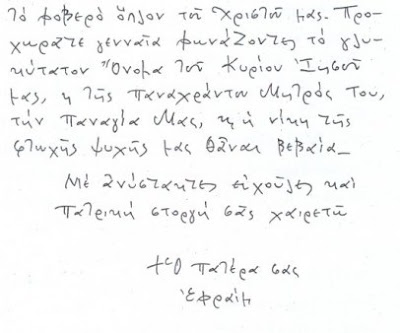 τὸ φοβερὸ ὅπλον τοῦ Χριστοῦ μας. Προ-
χωρᾶτε γενναῖα φωνάζοντες τὸ γλυ-
κύτατον Ὄνομα τοῦ Κυρίου Ἰησοῦ
μας, κ τῆς Παναχράντου Μητρός Του,
τὴν Παναγία Μας, κ ἡ νίκη τῆς
φτωχῆς ψυχῆς μας θἆναι βεβαία_
Μὲ ἀνύστακτες εὐχοῦλες καὶ
πατρικὴ στοργὴ σᾶς χαιρετῶ
+ Ὁ πατέρα σας
Ἐφραὶμ